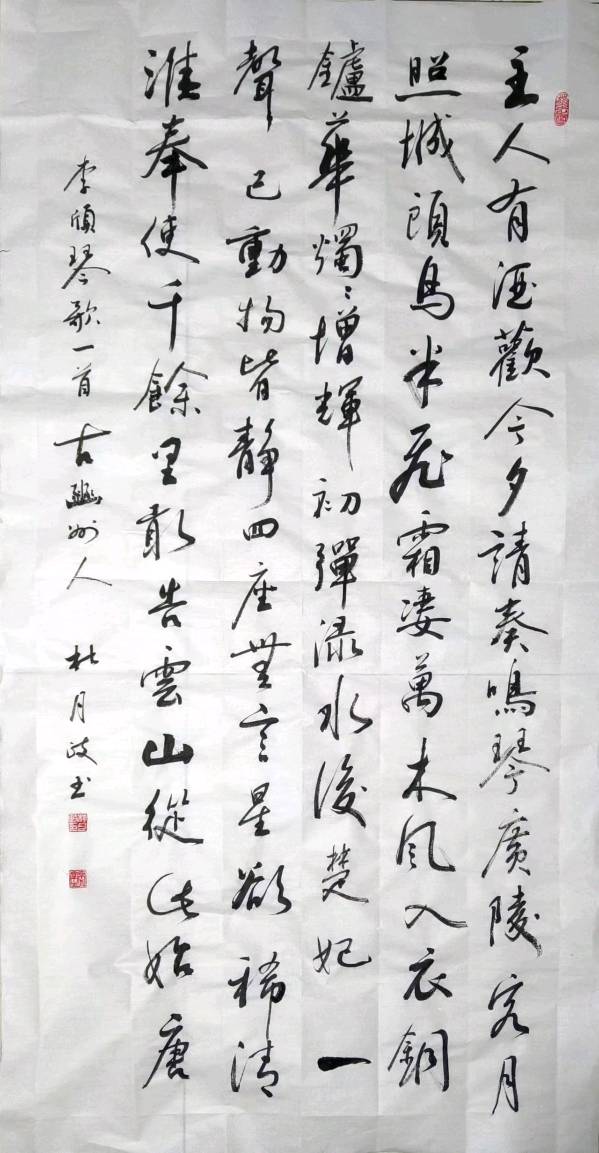 主人有酒歡今夕請奏鳴琴廣陵客月
照城頭烏半飛霜凄萬木風入衣銅
鑪華燭〻增輝初彈淥水後楚妃一
聲已動物皆靜四座無言星欲稀清
淮奉使千餘里敢告雲山從此始唐
李頎琴歌一首 古幽州人 杜月书